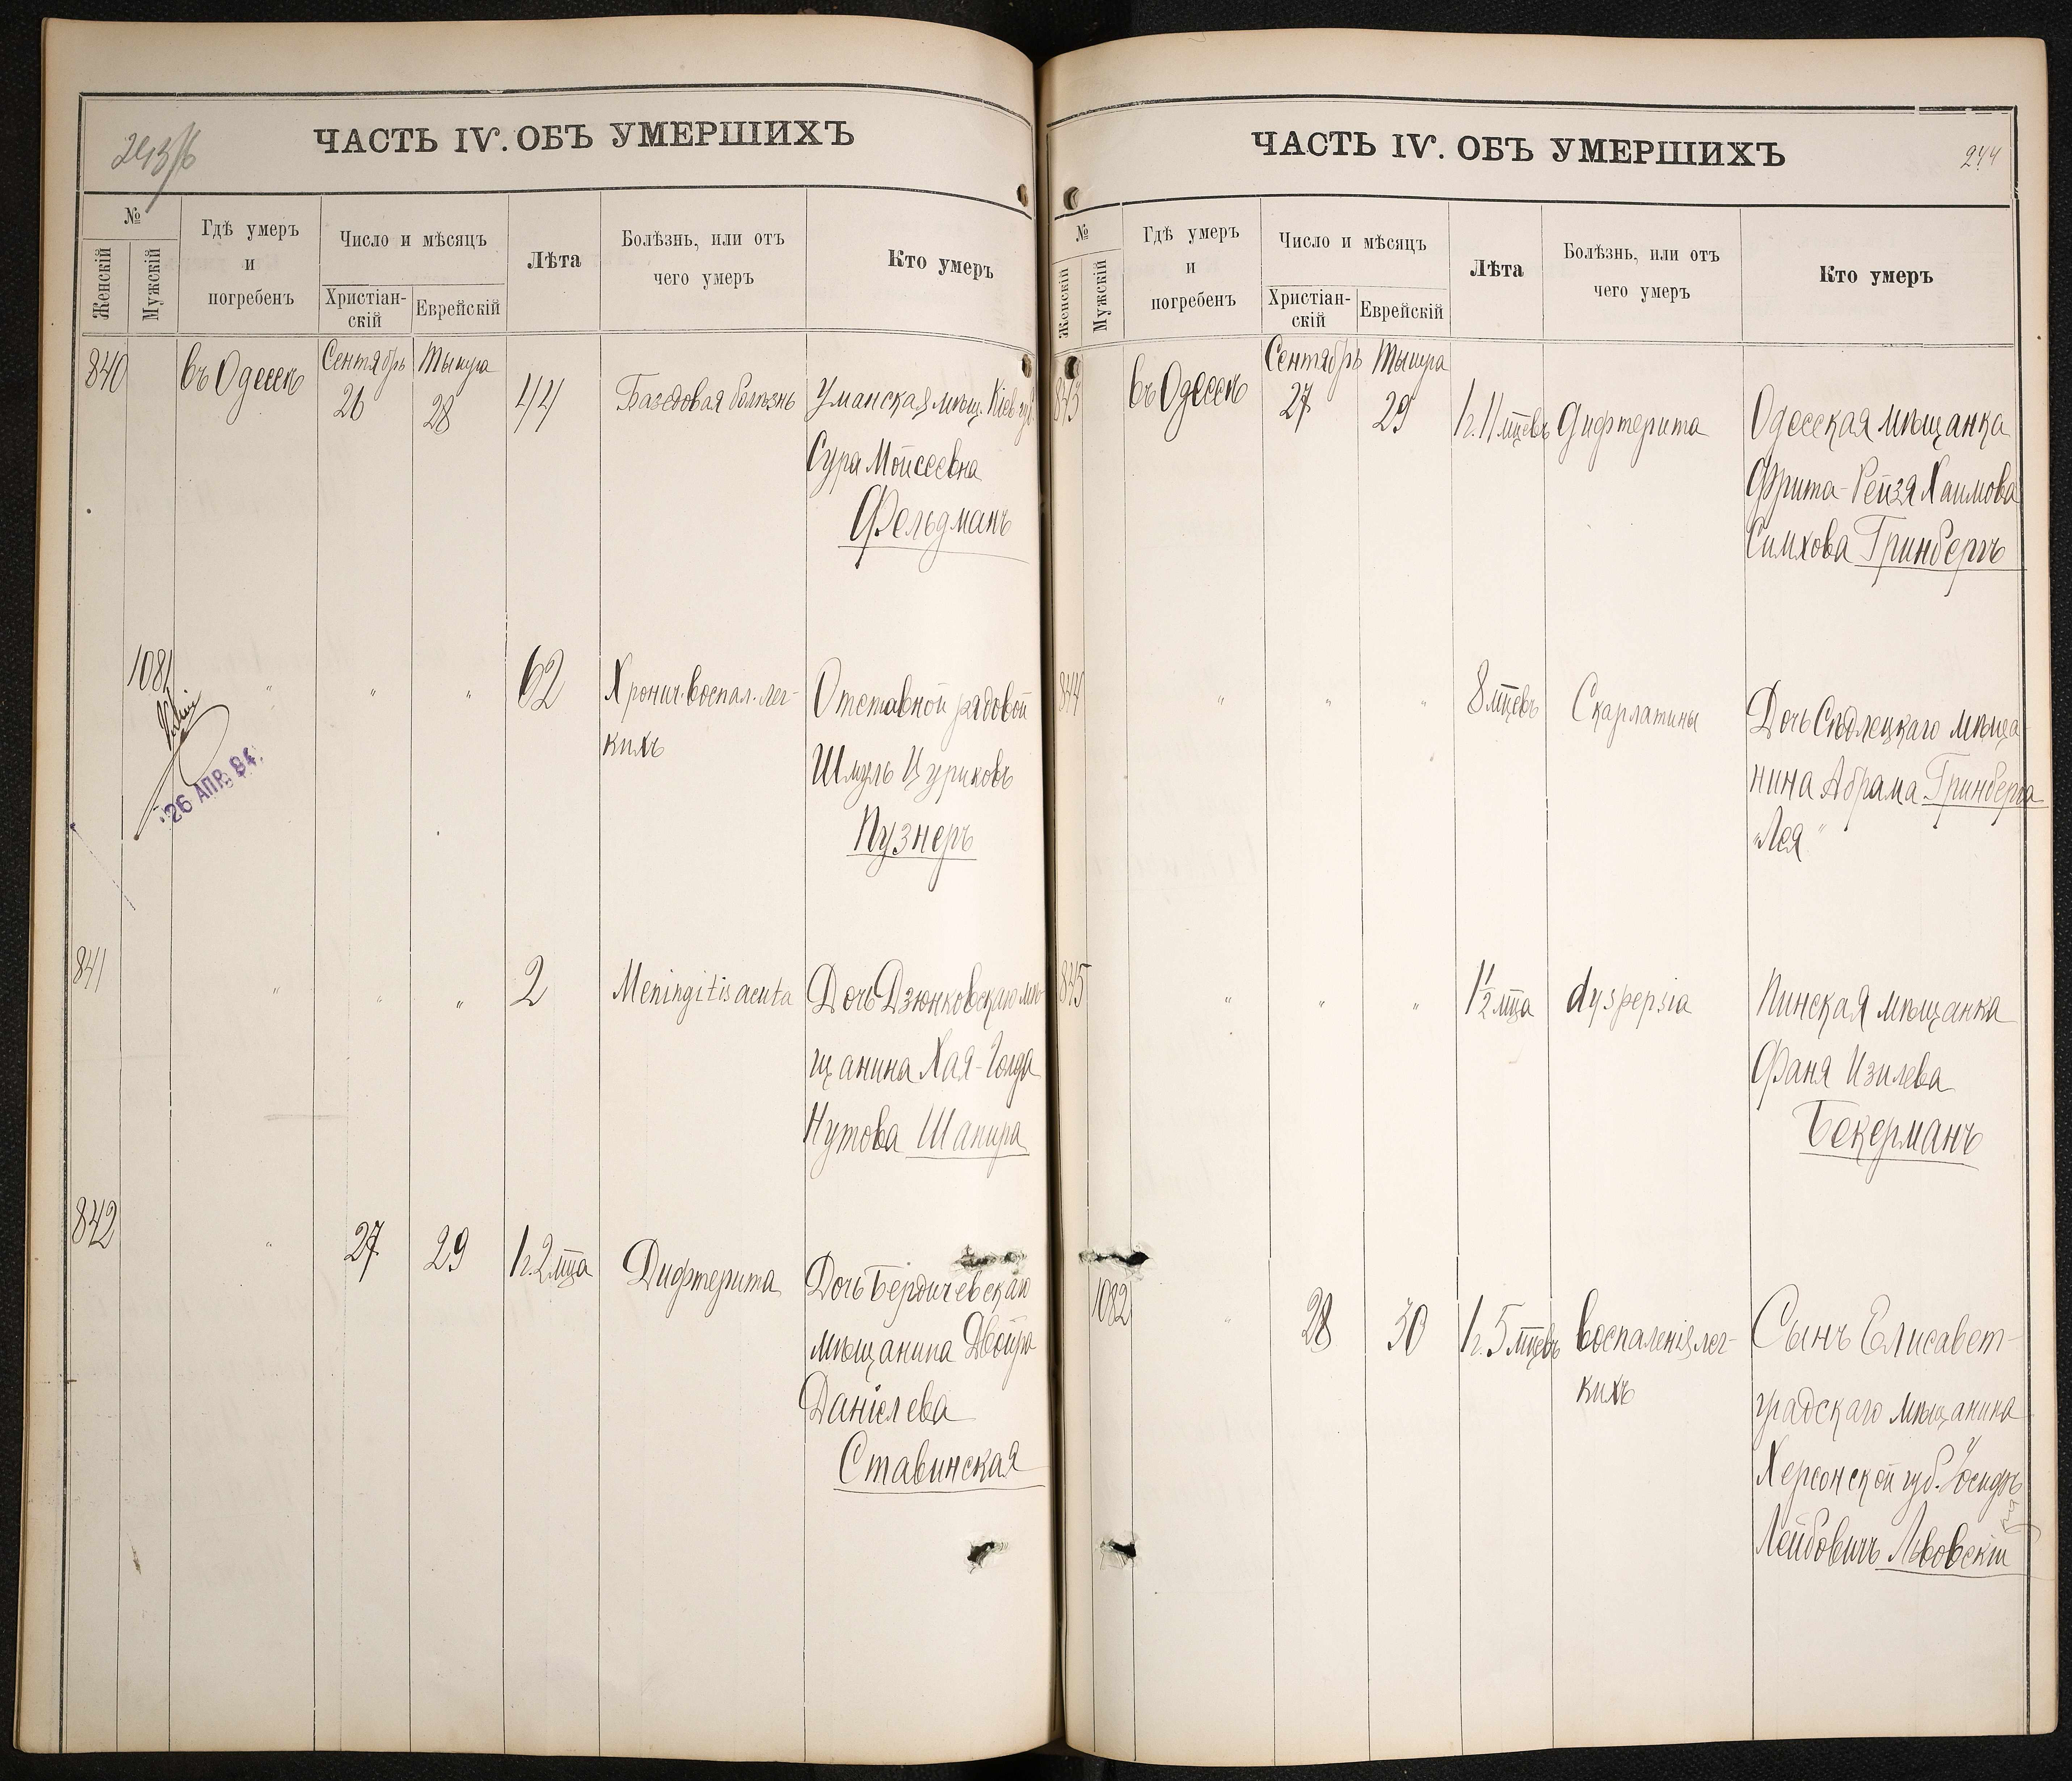 243/б
ЧАСТЬ IV. ОБЪ УМЕРШИХЪ
№
Женскій
Мужскій
Гдѣ умеръ
и
погребенъ
Число и мѣсяцъ
Христіан-
скій
Еврейскій
Лѣта
Болѣзнь, или отъ
чего умеръ
Кто умеръ
840 въ Одессѣ Сентябрь 26 Тышра 28 44 Базедовая болѣзнь Уманская мѣщ. Кіев. губ.
Сура Мойсеевна
Фельдманъ
1081 " " " 62 Хронич. воспал. лег- Отставной рядовой
кихъ Шмуль Цуриковъ
Пузнеръ
26 АПР. 84.
841 " " " 2 Meningitis acuta Дочь Дзюнковскаго мѣ-
щанина Хая-Голда
Нутова Шапира
842 " 27 29 1 г. 2 мца Дифтерита Дочь Бердичевскаго
мѣщанина Двойра
Даніелева
Ставинская
244
ЧАСТЬ IV. ОБЪ УМЕРШИХЪ
№
Женскій
Мужскій
Гдѣ умеръ
и
погребенъ
Число и мѣсяцъ
Христіан-
скій
Еврейскій
Лѣта
Болѣзнь, или отъ
чего умеръ
Кто умеръ
843 въ Одессѣ Сентябрь 27 Тышра 29 1 г. 11 мцевъ Дифтерита Одесская мѣщанка
Фрита-Рейзя Хаимова
Симхова Гринбергъ
844 " " " 8 мцевъ Скарлатины Дочь Сѣдлецкаго мѣща-
нина Абрама Гринберга
"Лея"
845 " " " 1½ мца dyspepsia Пинская мѣщанка
Фаня Изилева
Бекерманъ
1082 " 28 30 1 г. 5 мцевъ Воспаленія лег- Сынъ Елисавет-
кихъ градскаго мѣщанина
Херсонской губ. Іосифъ
Лейбовичъ Львовскій